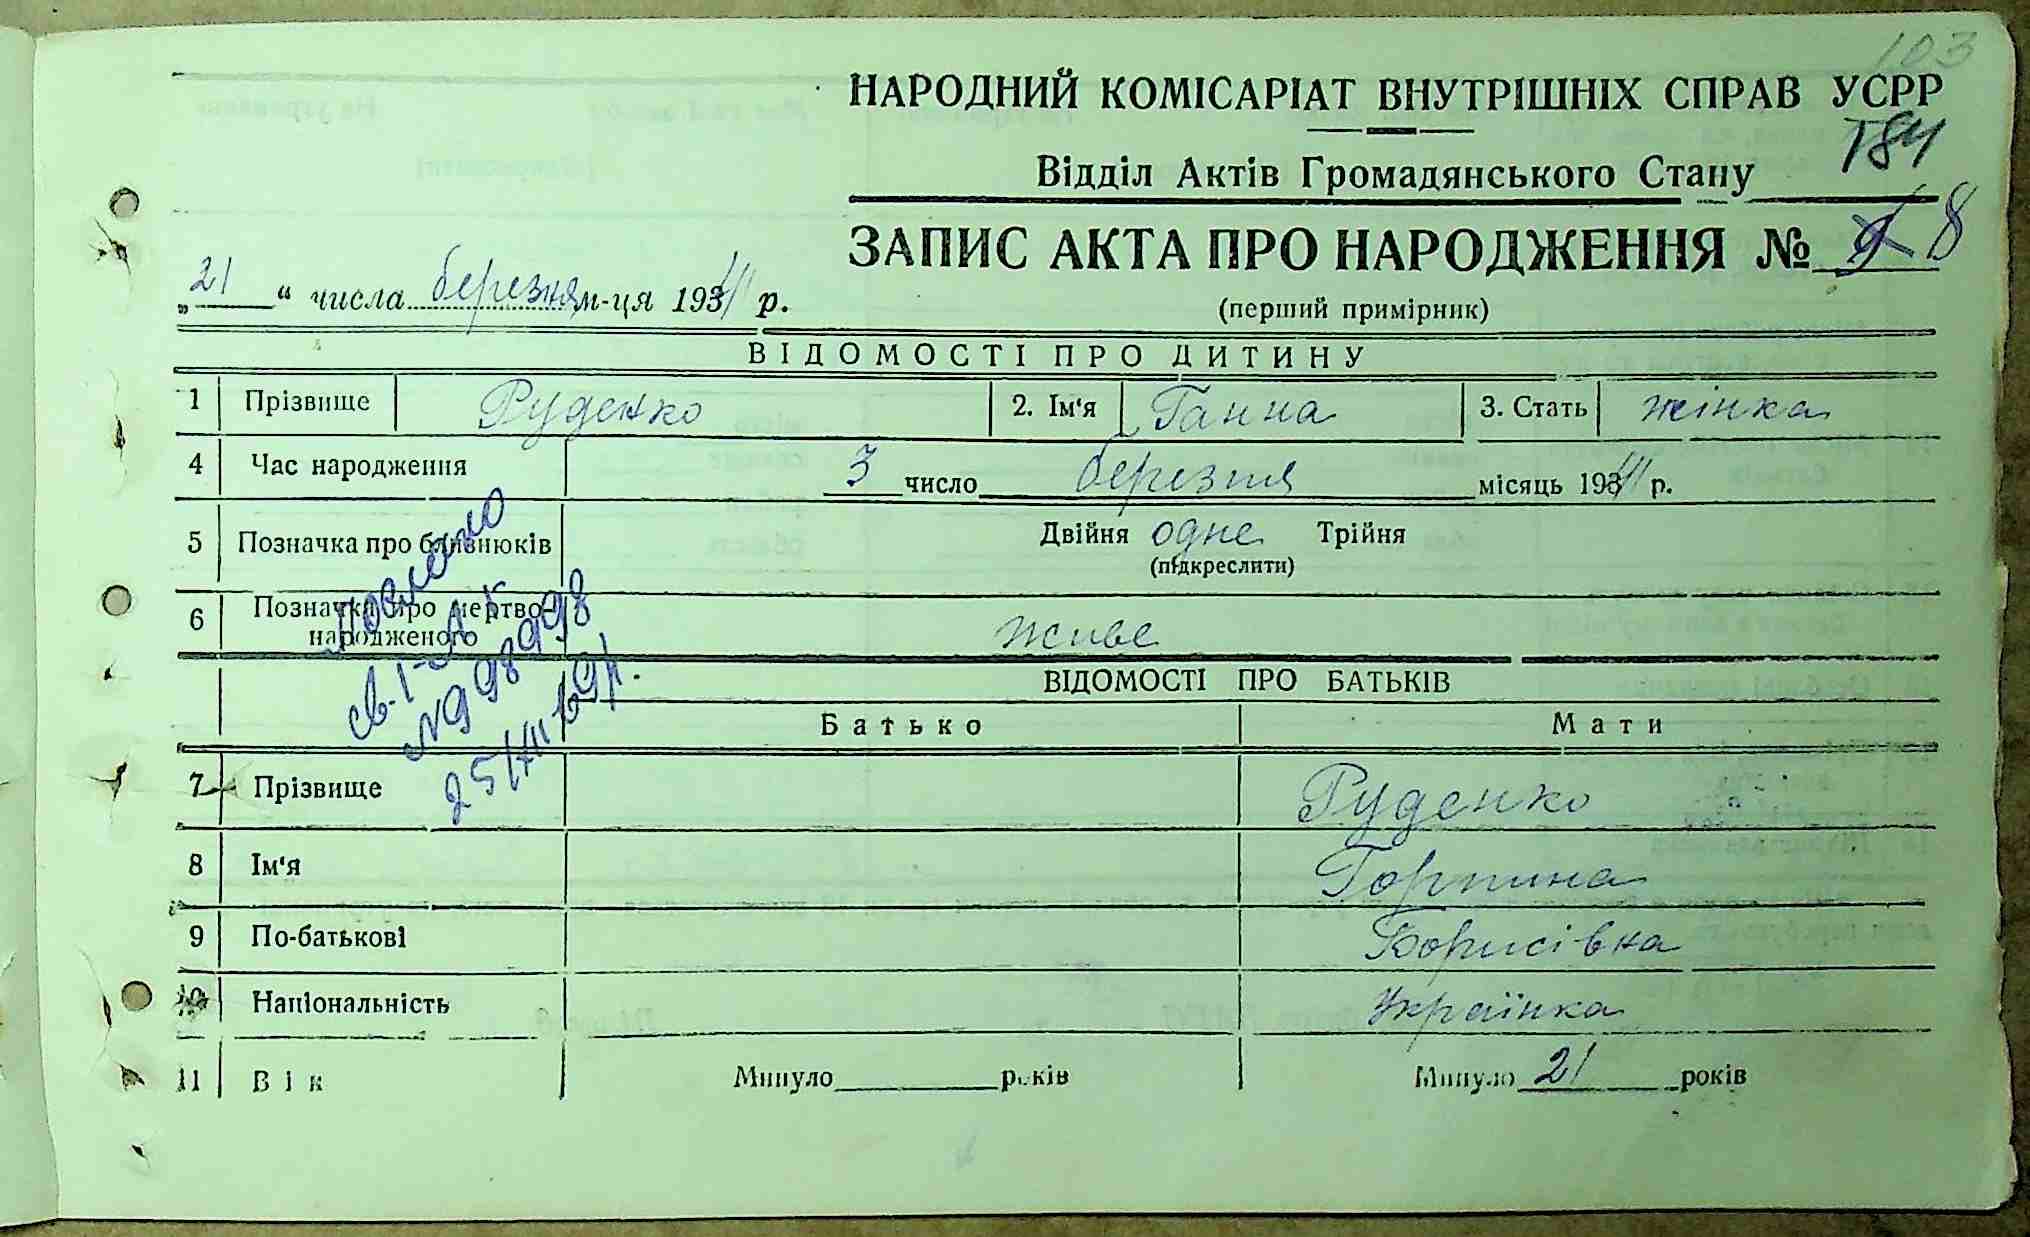 103
НАРОДНИЙ КОМІСАРІАТ ВНУТРІШНІХ СПРАВ УСРР
184
Відділ Актів Громадянського Стану
ЗАПИС АКТА ПРО НАРОДЖЕННЯ № 8
„21“ числа березня м-ця 1941 р.
(перший примірник)
ВІДОМОСТІ ПРО ДИТИНУ
1 Прізвище Руденко 2. Ім'я Ганна 3. Стать жінка
4 Час народження 3 число березня місяць 1941 р.
5 Позначка про близнюків Двійня одне Трійня
(підкреслити)
6 Позначка про мертво-
народженого живе
ВІДОМОСТІ ПРО БАТЬКІВ
Батько Мати
7 Прізвище Руденко
8 Ім'я Горпина
9 По-батькові Борисівна
10 Національність Українка
11 Вік Минуло років Минуло 21 років
№ 989998